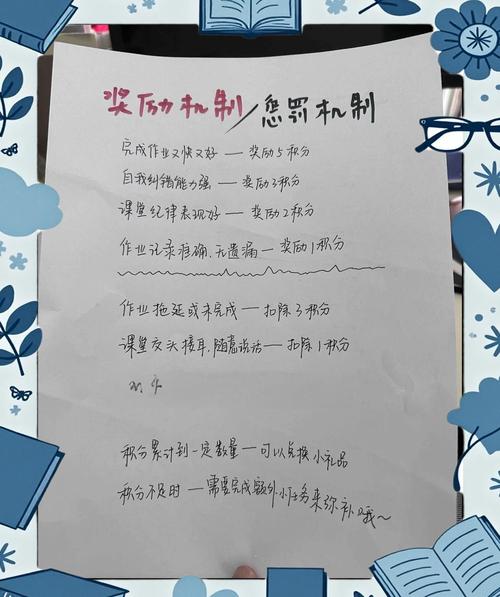 奖励机制/惩罚机制
完成作业又快又好——奖励5积分
自我纠错能力强——奖励3积分
课堂纪律表现好——奖励2积分
作业记录准确、无遗漏——奖励1积分
作业拖延或未完成——扣除3积分
课堂交头接耳、随意说话——扣除1积分
积分累计到一定数量——可以兑换小礼品
积分不足时——需要完成额外小任务来弥补哦~